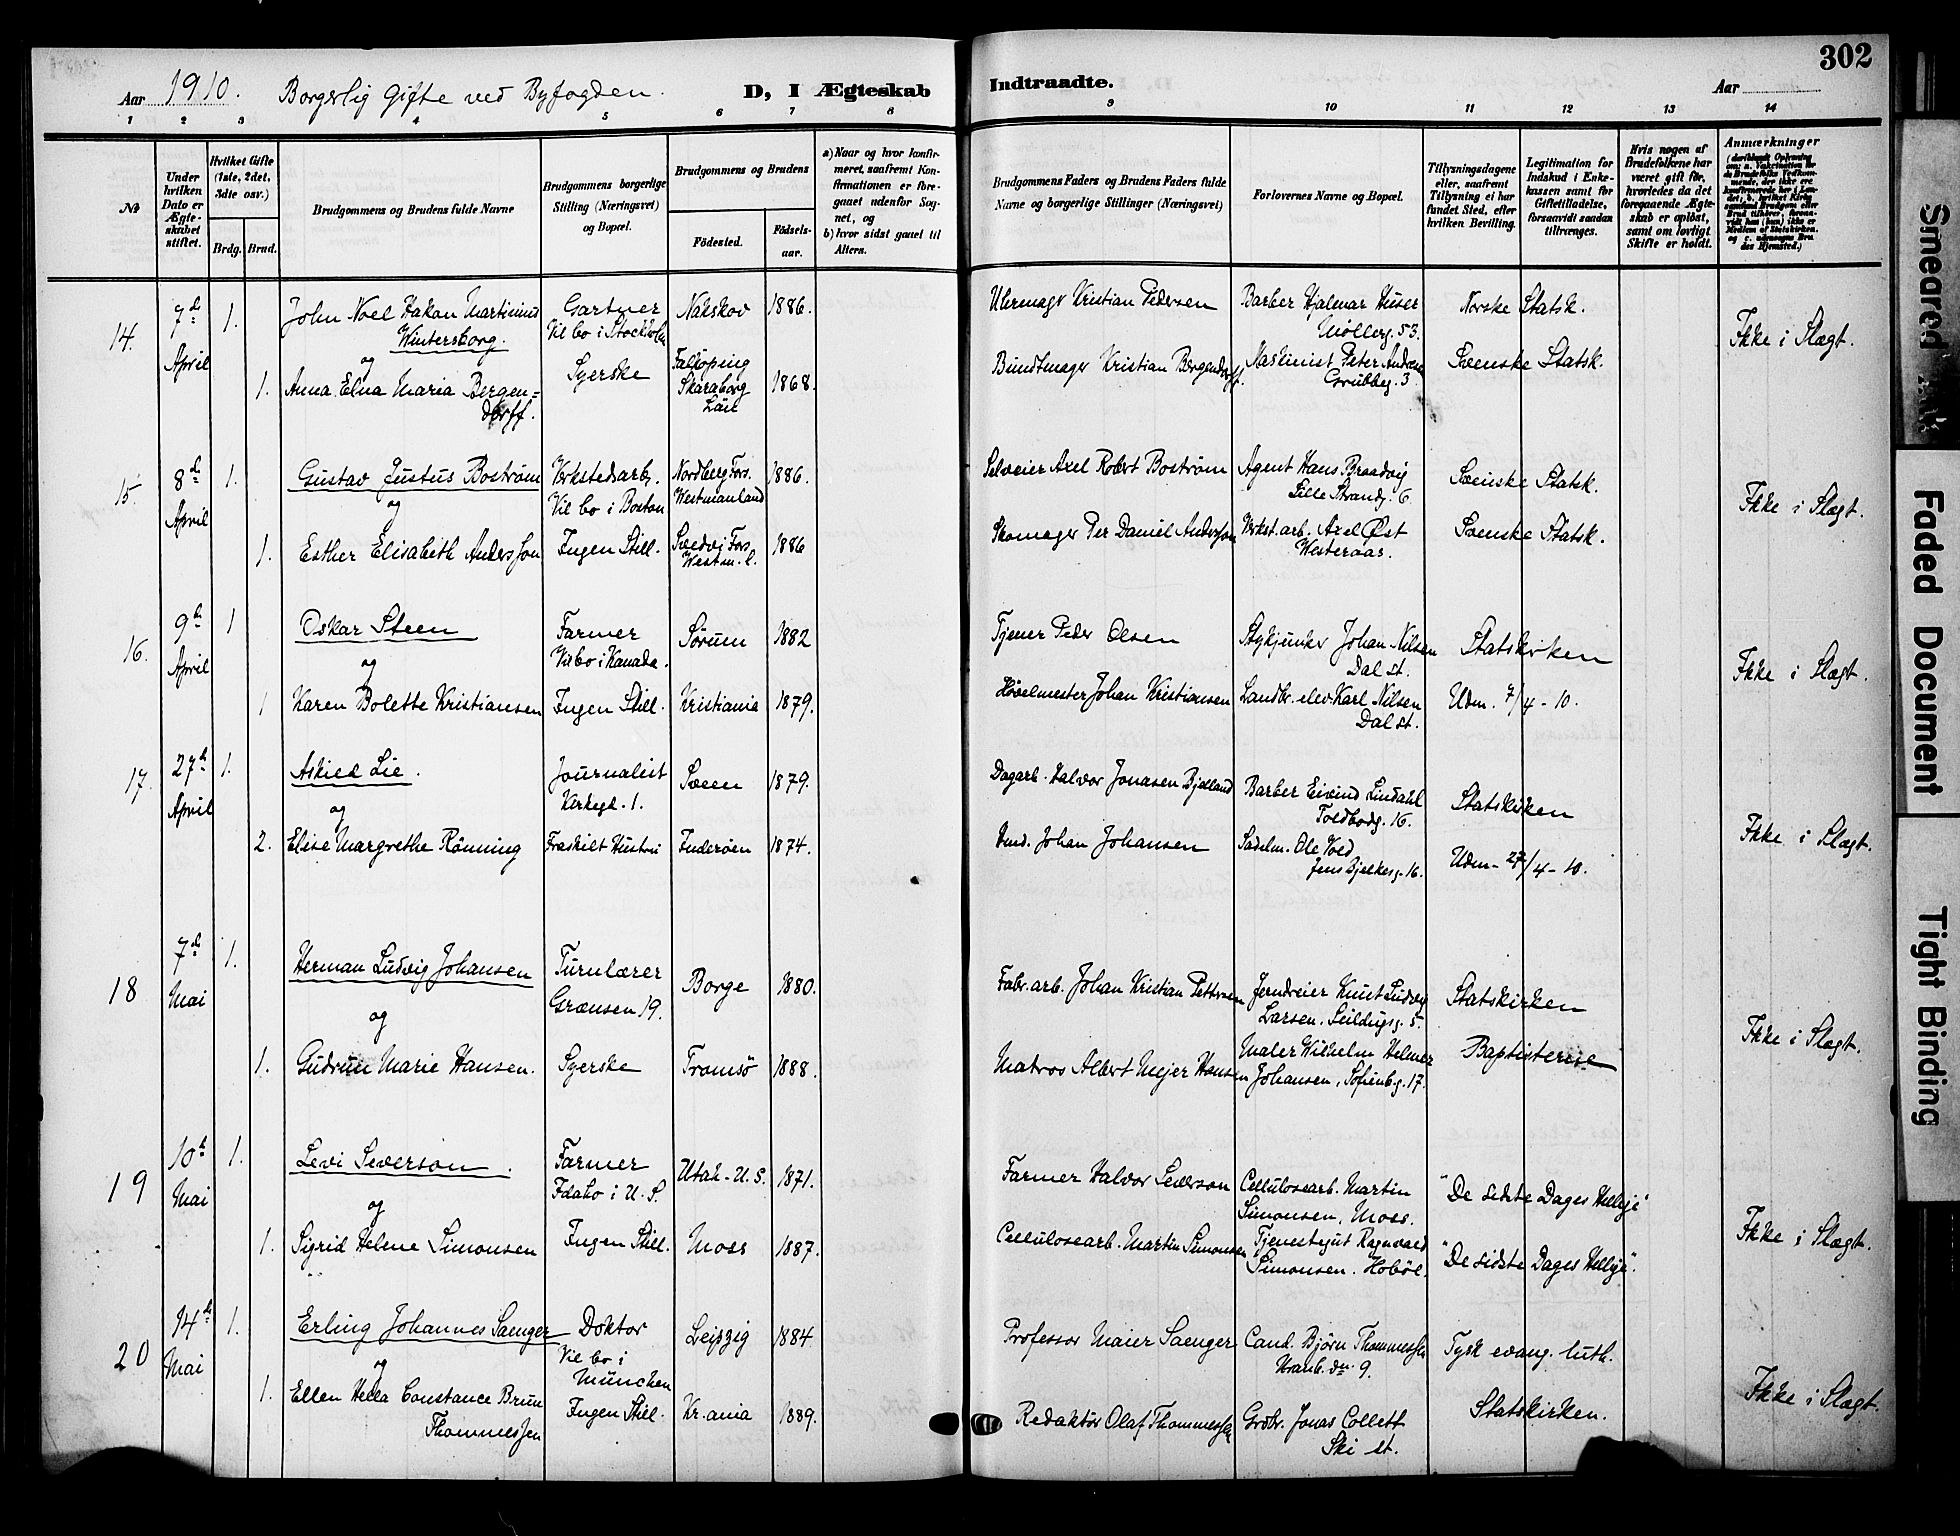 302
Aar 1910. Borgerlig Gifte ved Byfogden. D, I Ægteskab Indtraadte. Aar
1 2 3 4 5 6 7 8 9 10 11 12 13 14
№
Under hvilken Dato er Ægteskabet stiftet.
Hvilket Gifte (1ste, 2det, 3die osv.)
Brdg. Brud.
Brudgommens og Brudens fulde Navne
Brudgommens borgerlige Stilling (Næringsvei) og Bopæl.
Brudgommens og Brudens
Födested.
Födselsaar.
a) Naar og hvor konfirmeret, saafremt Konfirmationen er foregaaet udenfor Sognet, og
b) hvor sidst gaaet til Alters.
Brudgommens Faders og Brudens Faders fulde Navne og borgerlige Stillinger (Næringsvei)
Forlovernes Navne og Bopæl.
Tillysningsdagene eller, saafremt Tillysning ei har fundet Sted, efter hvilken Bevilling.
Legitimation for Indskud i Enkekassen samt for Giftetilladelse, forsaavidt saadan tiltrænges.
Hvis nogen af Brudefolkene har været gift før, hvorledes da det foregaaende Ægteskab er oplöst, samt om lovligt Skifte er holdt.
Anmærkninger
14. 7de April 1. John Noel Hakon Martinius Wintersborg. Gartner Vil bo i Stockholm Nakskov 1886. Uhrmagr Kristian Pedersen Barber Hjalmar Huser Mollerg. 53. Norske Statsk. Ikke i Slægt.
og
1. Anna Elna Maria Bergendorff. Syerske Falköping Skaraborg Län 1868. Bundtmager Kristian Bergendorff. Maskinist Peter Andersen Grubbeg. 3. Svenske Statsk.
15 8de April 1. Gustav Justus Boström Verkstedsarb. Vil bo i Boston Nordberg Fors. Westmanland 1886. Selveier Axel Robert Boström Agent Hans Braadvig Lille Strandg. 6 Svenske Statsk. Ikke i Slægt.
og
1. Esther Elisabeth Andersson Ingen Still. Svedvi Fors. Westm. l. 1886 Skomager Per Daniel Andersson Verkst. arb. Axel Öst Westeraas. Svenske Statsk.
16. 9de April 1 Oskar Steen Farmer Vil bo i Kanada. Sörum 1882 Tjener Peder Olsen Stykjunker Johan Nilsen Dal st. Statskirken Ikke i Slægt.
og
1 Karen Bolette Kristiansen Ingen Still. Kristiania 1879. Høvelmester Johan Kristiansen Landbr. elev. Karl Nilsen Dal st. Udm. 7/4-10.
17. 27de April 1. Askild Lie. Journalist Kirkegd. 1. Sveen 1879. Dagarb. Halvor Jonasen Bjelland Barber Eivind Lindahl Toldbodg. 16. Statskirken
og
2. Elise Margrethe Rönning Fraskilt Hustru Inderöen 1874. Smd. Johan Johansen Sadelm. Ole Vold Jens Bjelkesg. 16. Udm. 27/4-10. Ikke i Slægt.
18 7de Mai 1. Herman Ludvig Johansen Turnlærer Grænsen 19. Borge 1880. Fabr. arb. Johan Kristian Pettersen Jerndreier Knut Ludvig Larsen, Seildugsg. 5. Statskirken Ikke i Slægt.
og
1. Gudrun Marie Hansen. Syerske Tromsö 1888. Matros Albert Mejer Hansen Maler Wilhelm Helmer Johansen, Sofienbg. 17. Baptisterne
19 10de Mai 1. Levi Severson. Farmer Idaho i U. S. Utah-U. S. 1871. Farmer Halvor Severson Cellulosearb. Martin Simonsen, Moss. "De sidste Dages Hellige" Ikke i Slægt.
og
1. Sigrid Helene Simonsen Ingen Still. Moss 1887. Cellulosearb. Martin Simonsen Tjenestegut Ragnvald Simonsen. Hobøl. "De sidste Dages Hellige".
20 14de Mai 1. Erling Johannes Saenger Doktor Vil bo i München Leipzig 1884. Professor Maier Saenger Cand. Björn Thommessen 9. Tysk evang. luth. Ikke i Slægt.
og
1. Ellen Hella Constance Brun Thommessen Ingen Still. Kr.ania 1889. Redaktör Olaf Thommessen Grosr. Jonas Collett Ski st. Statskirken.
Smeared Ink
Faded Document
Tight Binding